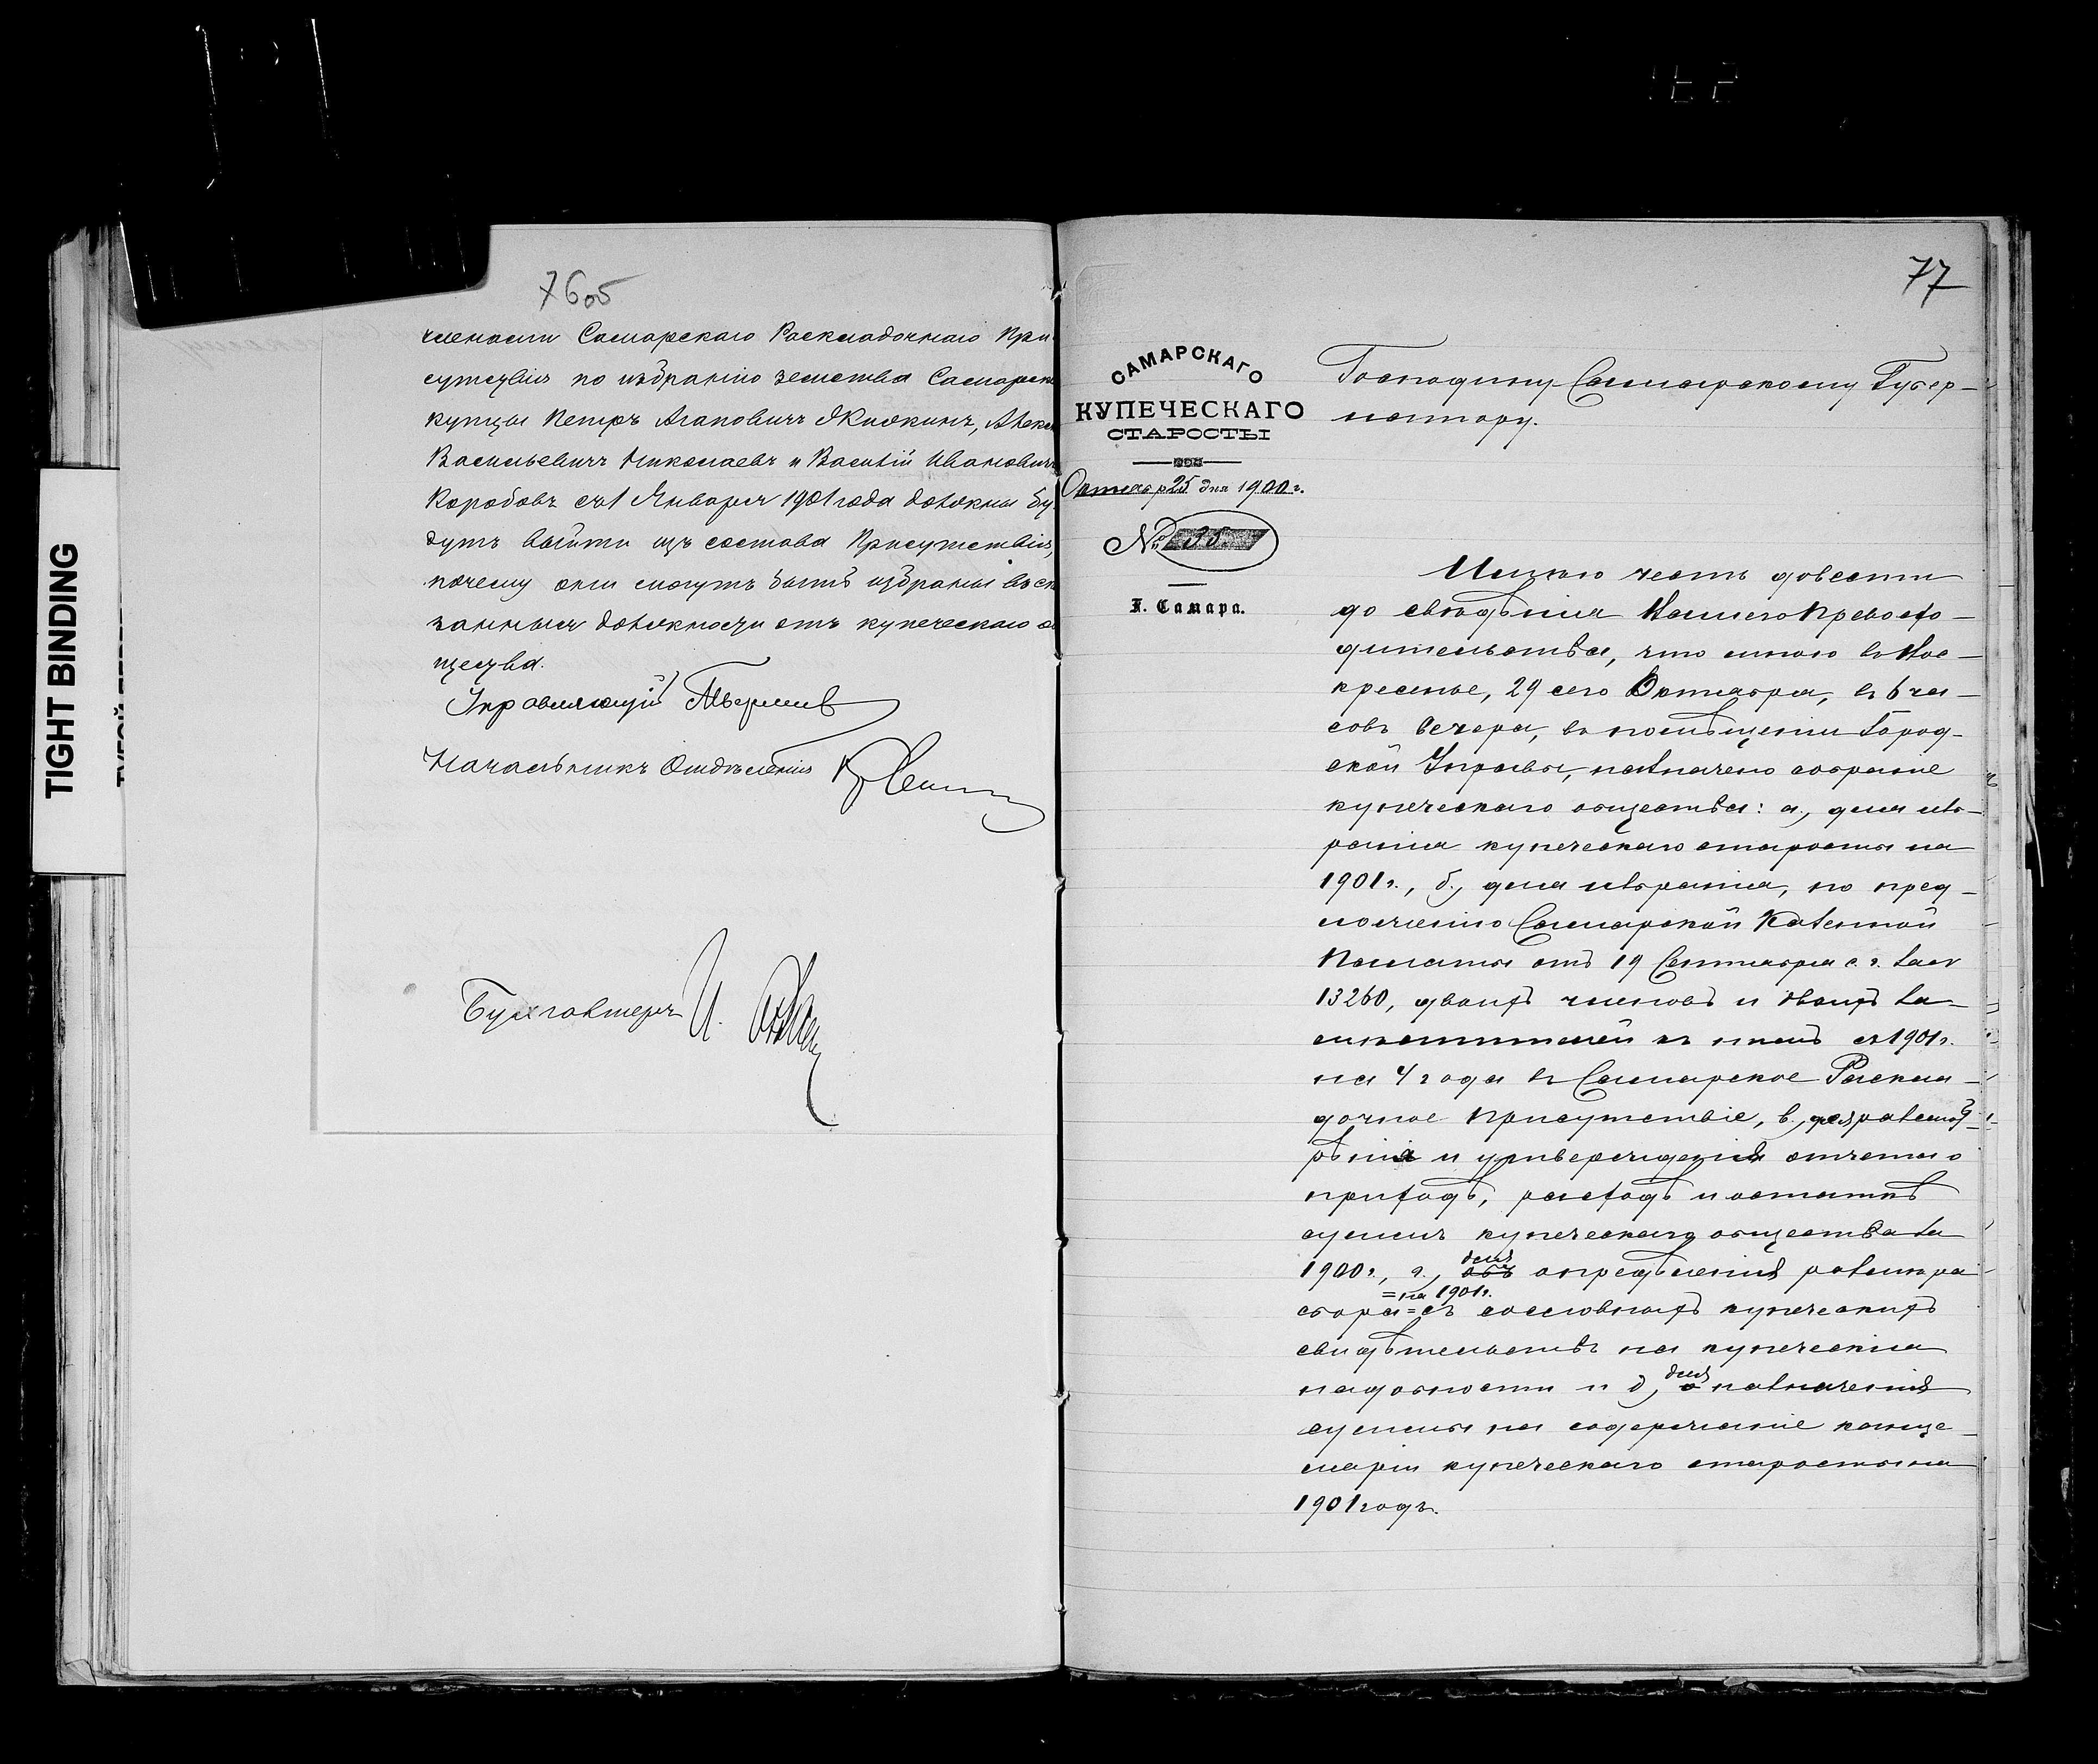 TIGHT BINDING
76об
членами Самарскаго Раскладочнаго При
сутствія по избранію земства Самарск
купцы Петръ Агаповичъ Жилкинъ, Алекс
Васильевичъ Николаевъ и Василій Ивановичъ
Коробовъ съ 1 Января 1901 года должны бу
дутъ выйти изъ состава Присутствія,
почему они могутъ быть избраны въ ска
занныя должности отъ купеческаго об
щества.
Управляющій
Начальникъ Отдѣленія
Бухгалтеръ И.
77
САМАРСКАГО
КУПЕЧЕСКАГО
СТАРОСТЫ
Октября 25 дня 1900 г.
№
Г. Самара.
Господину Самарскому Губер-
натору.
Имѣю честь довести
до свѣдѣнія Вашего Превосхо-
дительства, что мною въ Вос-
кресенье, 29 сего Октября, въ 6 ча-
совъ вечера, въ помѣщеніи Город-
ской Управы, назначено собраніе
купеческаго общества: а., для изб-
ранія купеческаго старосты на
1901 г., б., для избранія, по пред-
ложенію Самарской Казенной
Палаты отъ 19 Сентября с. г. за №
13260, двоихъ членовъ и двоихъ за-
мѣстителей къ нимъ съ 1901 г.
на 4 года въ Самарское Раскла-
дочное Присутствіе, в., для разсмот-
рѣнія и утвержденія отчета о
приходѣ, расходѣ и остаткѣ
суммъ купеческаго общества за
1900 г., г., объ для опредѣленія размѣра
сбора = на 1901 г. = съ сословныхъ купеческихъ
свидѣтельствъ на купеческія
надобности и д, о для назначенія
суммы на содержаніе канце-
ляріи купеческаго старосты на
1901 годъ.